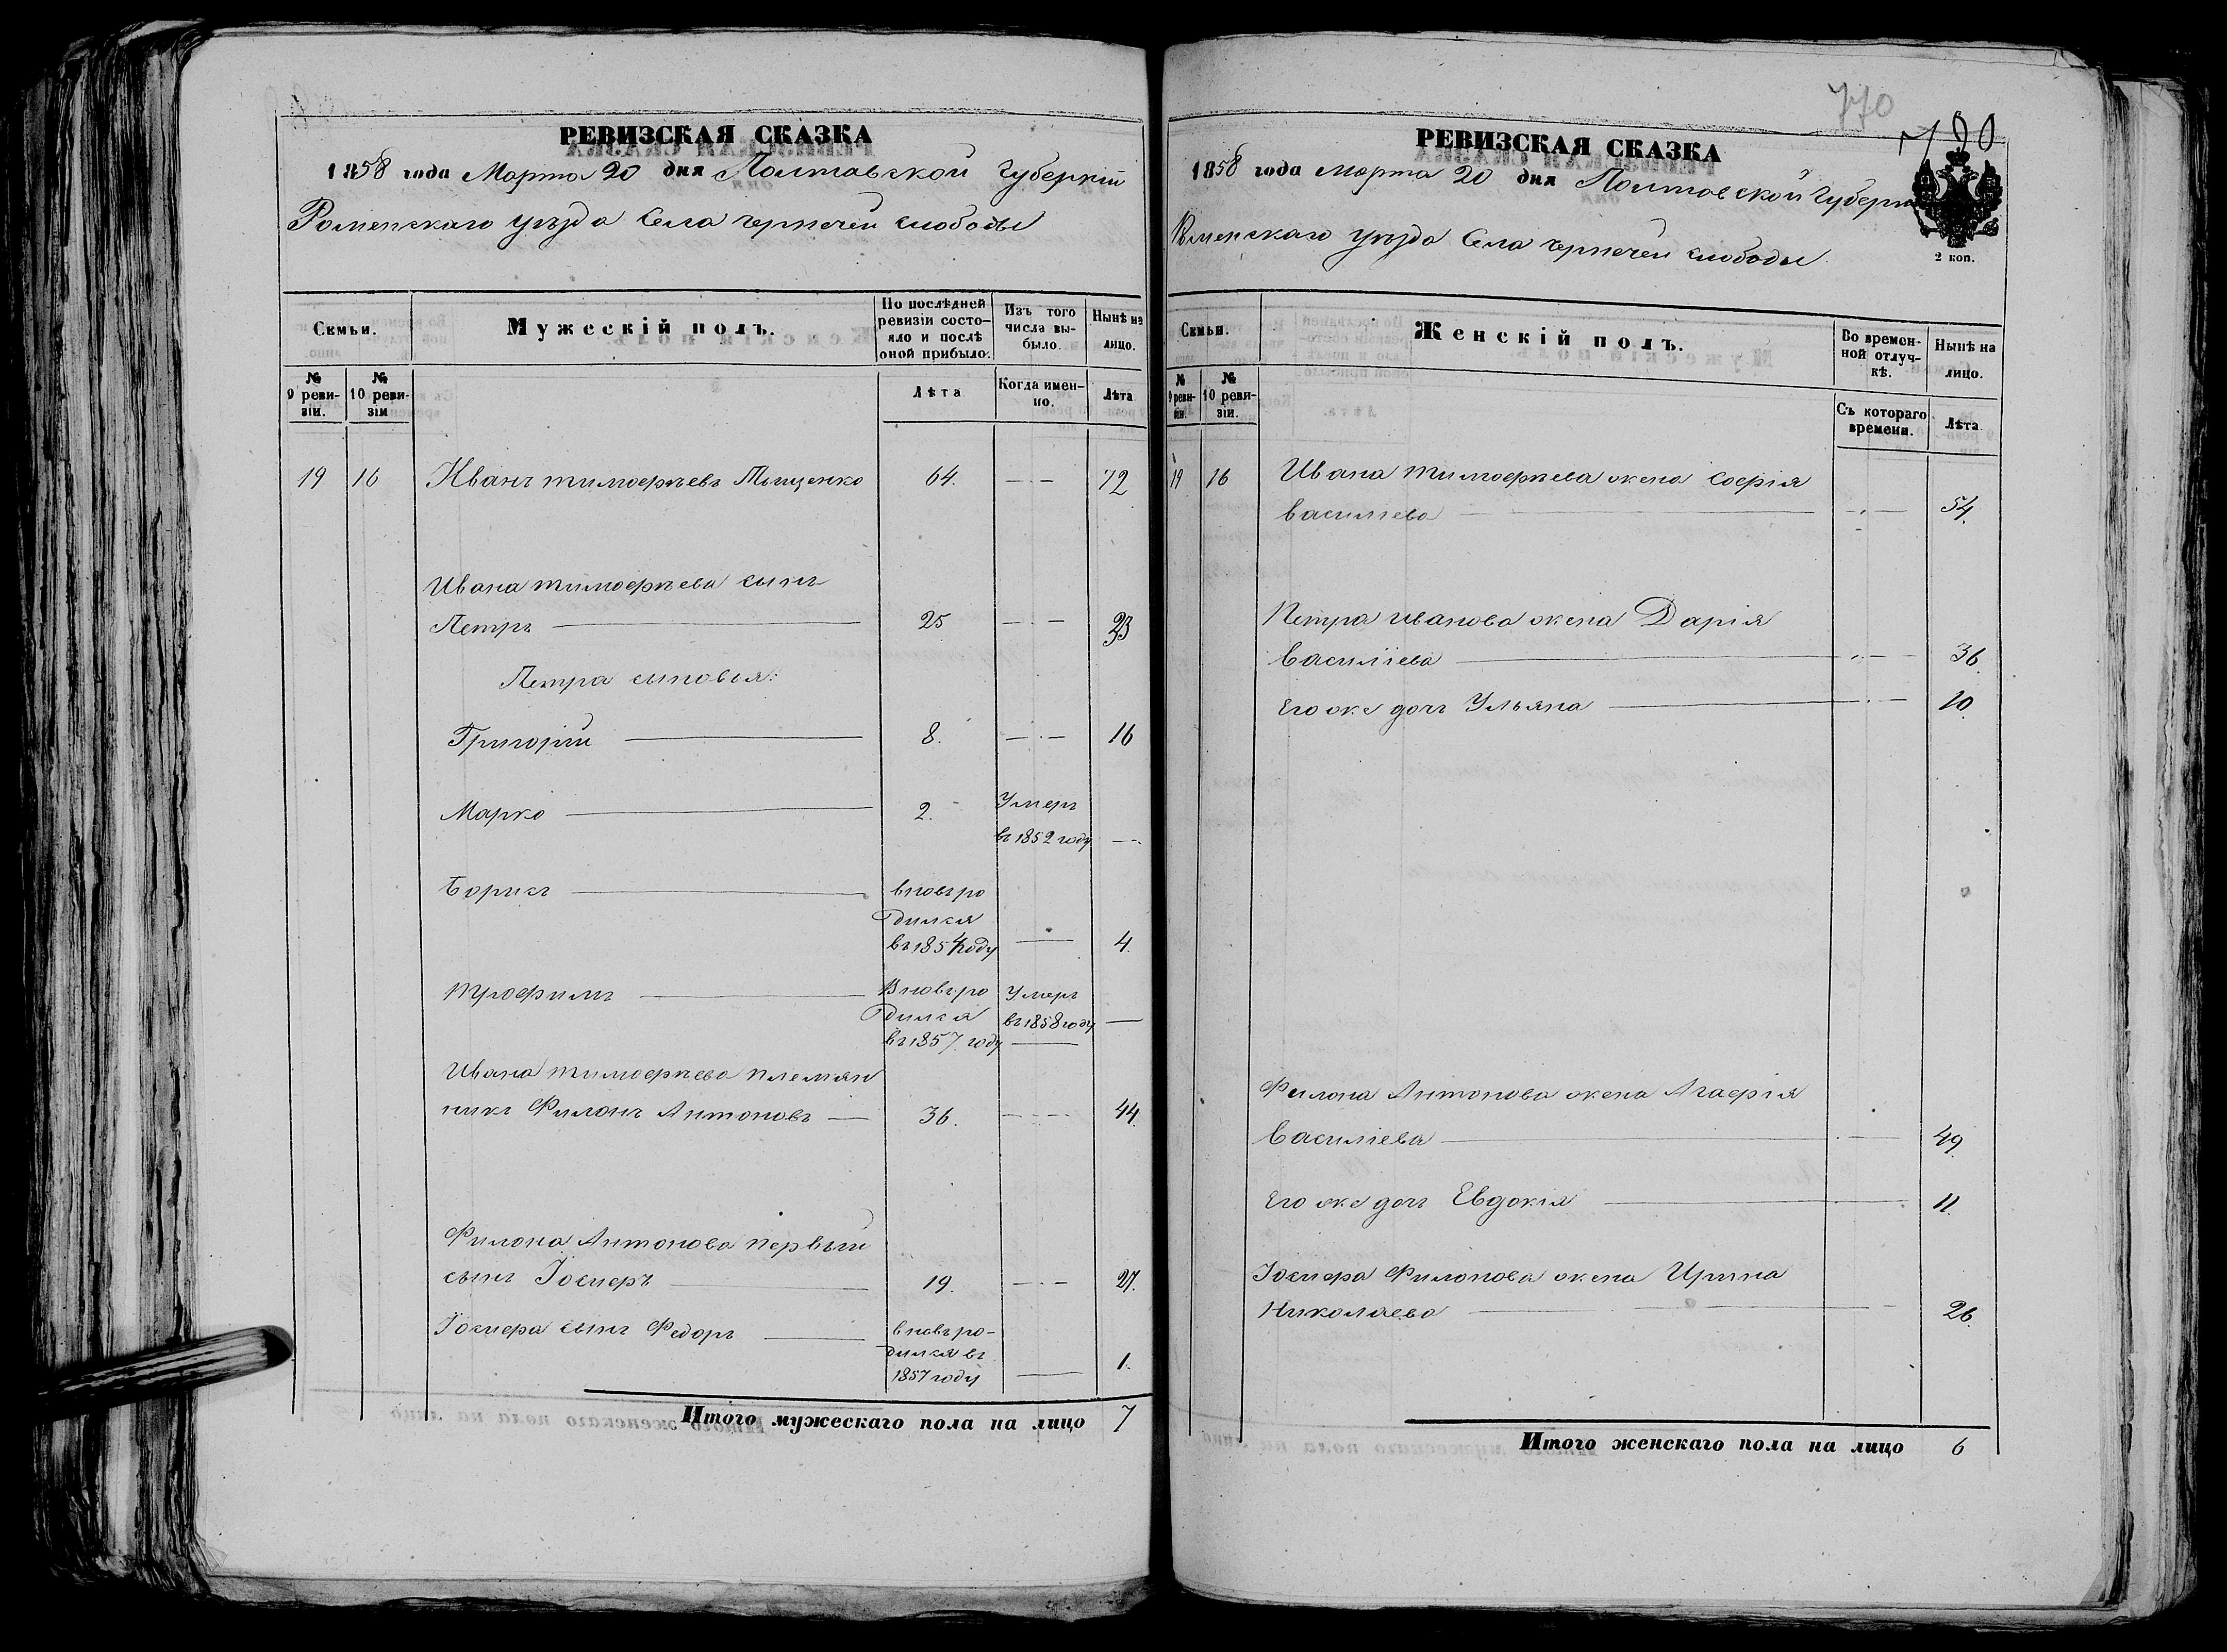 РЕВИЗСКАЯ СКАЗКА
1858 года Марта 20 дня Полтавской Губерніи
Роменскаго уѣзда Села Чернечей слободы
Семьи.
Мужескій полъ.
По послѣдней ревизіи состо-
яло и послѣ
оной прибыло.
Изъ того
числа вы-
было.
Нынѣ на
лицо.
№
9 реви-
зіи.
№
10 реви-
зіи
Лѣта
Когда имен-
но.
Лѣта
19 16 Иванъ Тимофѣевъ 64. 72
Ивана Тимофѣева сынъ
Петръ 25 33
Петра сыновья:
Григорій 8. 16
Марко 2. Умеръ
въ 1852 году
Борисъ вновь ро
дился
въ 1854 году 4.
Трофимъ Вновь ро Умеръ
дился въ 1858 году
въ 1857 году
Ивана Тимофѣева племян
никъ Филонъ Антоновъ 36. 44.
Филона Антонова первый
сынъ Іосифъ 19. 27.
Іосифа сынъ Федоръ вновь ро-
дился въ
1857 году 1.
Итого мужескаго пола на лицо 7
770
РЕВИЗСКАЯ СКАЗКА
1858 года Марта 20 дня Полтавской Губерн
Роменскаго уѣзда Села Чернечей слободы
2 коп.
Семьи.
Женскій полъ.
Во времен-
ной отлуч-
кѣ.
Нынѣ на
лицо.
№
9 реви-
зіи.
№
10 реви-
зіи.
Съ котораго
времени.
Лѣта
19 16 Ивана Тимофѣева жена Софія
Василіева 54.
Петра Иванова жена Дарія
Василіева 36
Его же дочь Ульяна 10.
Филона Антонова жена Агафія
Василіева 49
Его же дочь Евдокія 11.
Іосифа Филонова жена Ирина
Николаева 26.
Итого женскаго пола на лицо 6